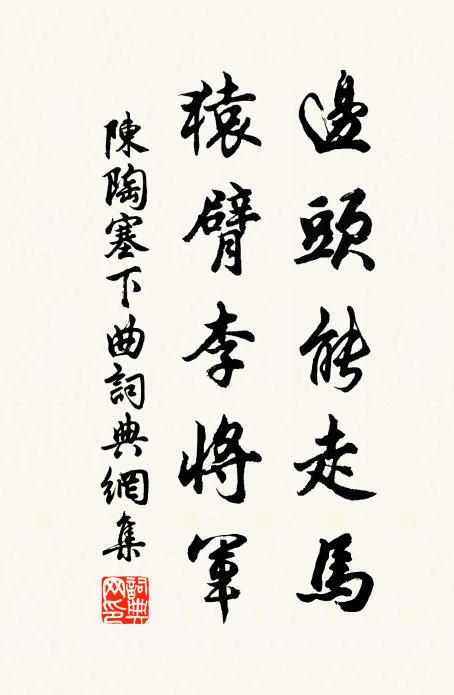 邊頭能走馬
猿臂李將軍
陳陶塞下曲詞典網集
詞典網印